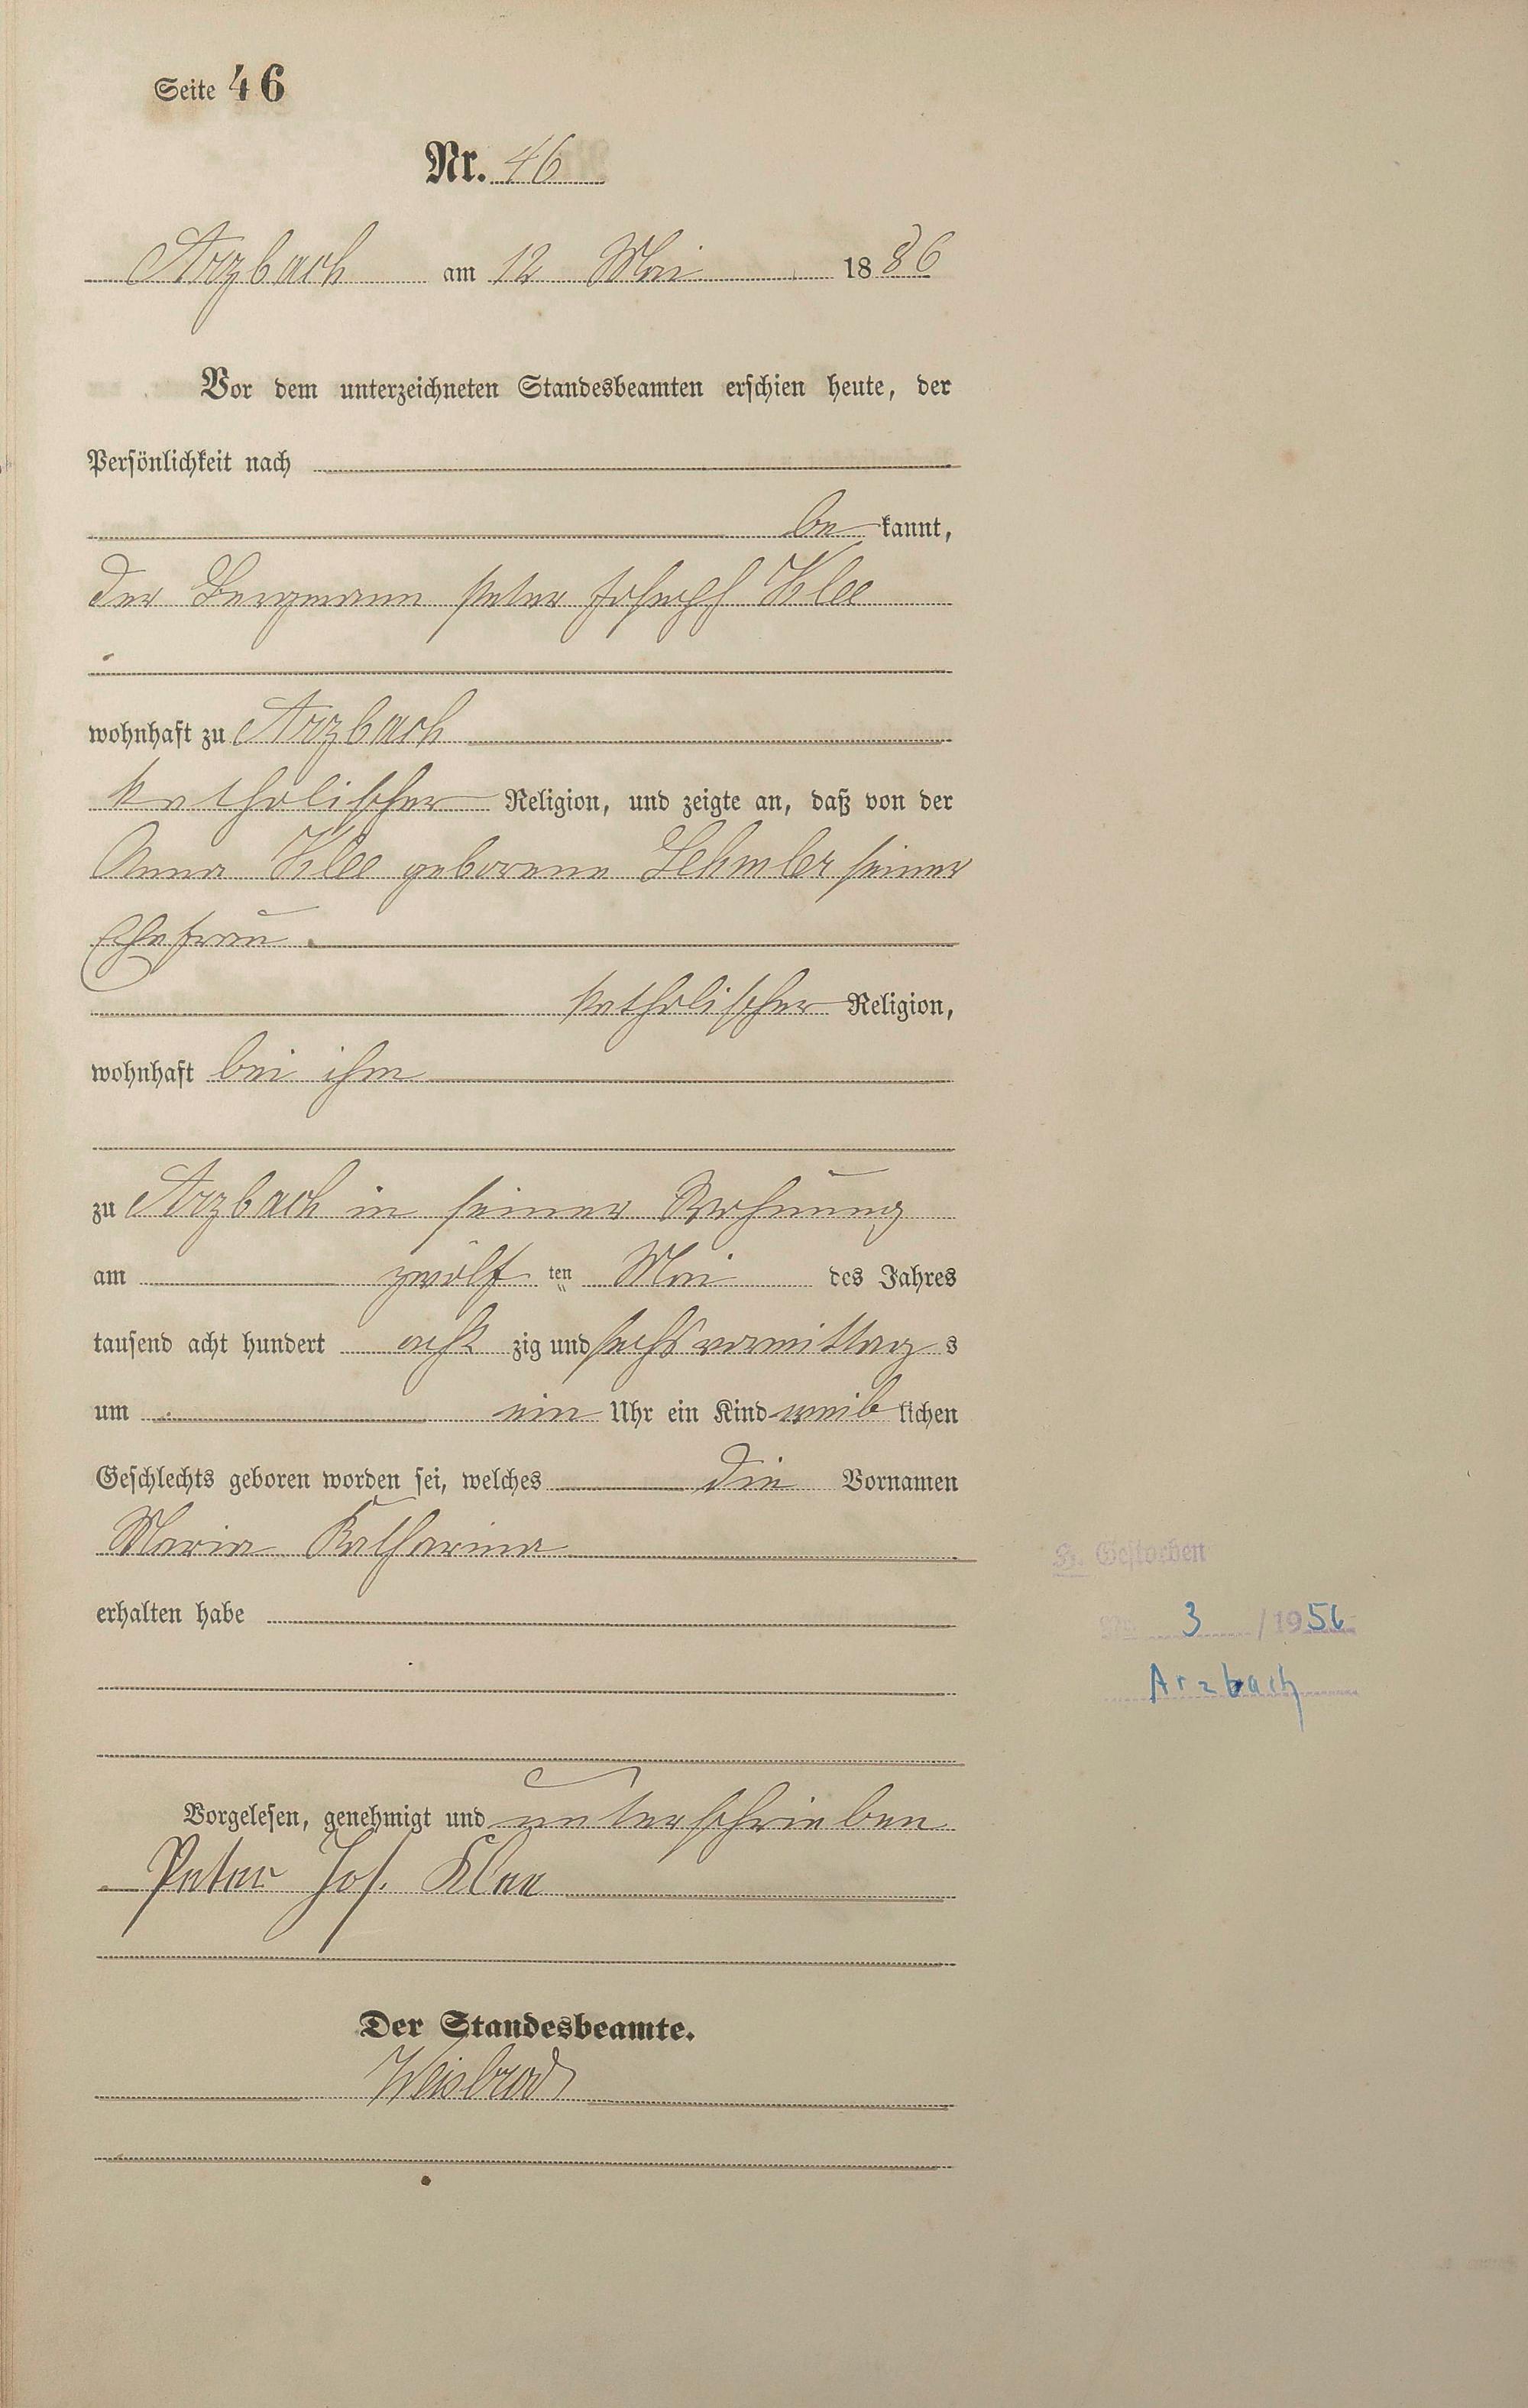 Seite 46
Nr. 46
Arzbach am 12 Mai 1886
Vor dem unterzeichneten Standesbeamten erschien heute, der
Persönlichkeit nach
be kannt,
der Bergmann Peter Joseph Klee
wohnhaft zu Arzbach
katholischer Religion, und zeigte an, daß von der
Anna Klee geborene Lehmler seiner
Ehefrau
katholischer Religion,
wohnhaft bei ihm
zu Arzbach in seiner Wohnung
am zwölf ten Mai des Jahres
tausend acht hundert acht zig und sechs vormittag s
um ein Uhr ein Kind weib lichen
Geschlechts geboren worden sei, welches die Vornamen
Maria Katharina
erhalten habe
H. Gestorben
Nr. 3 /1956
Arzbach
Vorgelesen, genehmigt und unterschrieben
Peter Jos. Klee
Der Standesbeamte.
Weisbrod